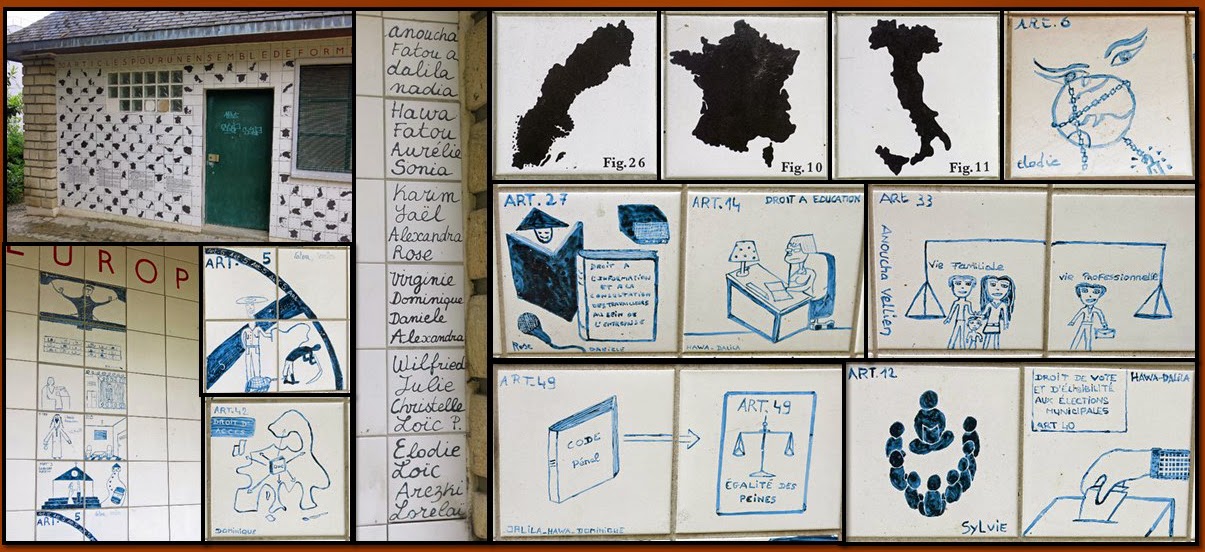 ARTICLES POUR UN ENSEMBLE DE FORM
EUROP
ART. 5
ART. 5
ART. 42
DROIT
DOMINIQUE
anoucha
Fatou a
dalila
nadia
Hawa
Fatou
Aurélie
Sonia
Karim
Yaël
Alexandra
Rose
Virginie
Dominique
Daniele
Alexandra
Wilfried
Julie
Christelle
Loïc P.
Elodie
Loïc
Arezki
Lorelaï
Fig. 26
Fig. 10
Fig. 11
ART. 6
élodie
ART. 27
DROIT A
L'INFORMATION
ET A LA
CONSULTATION
DES TRAVAILLEURS
AU SEIN DE
L'ENTREPRISE
Rose
DANIELE
ART. 14
DROIT A EDUCATION
HAWA-DALILA
ART 33
Anoucha Vellien
vie Familiale
vie Professionnelle
ART. 49
CODE
Pénal
ART. 49
ÉGALITÉ DES
PEINES
DALILA-HAWA-DOMINIQUE
ART. 12
SYLVIE
DROIT DE VOTE
ET D'ÉLIGIBILITÉ
AUX ÉLECTIONS
MUNICIPALES
ART 40
HAWA-DALILA